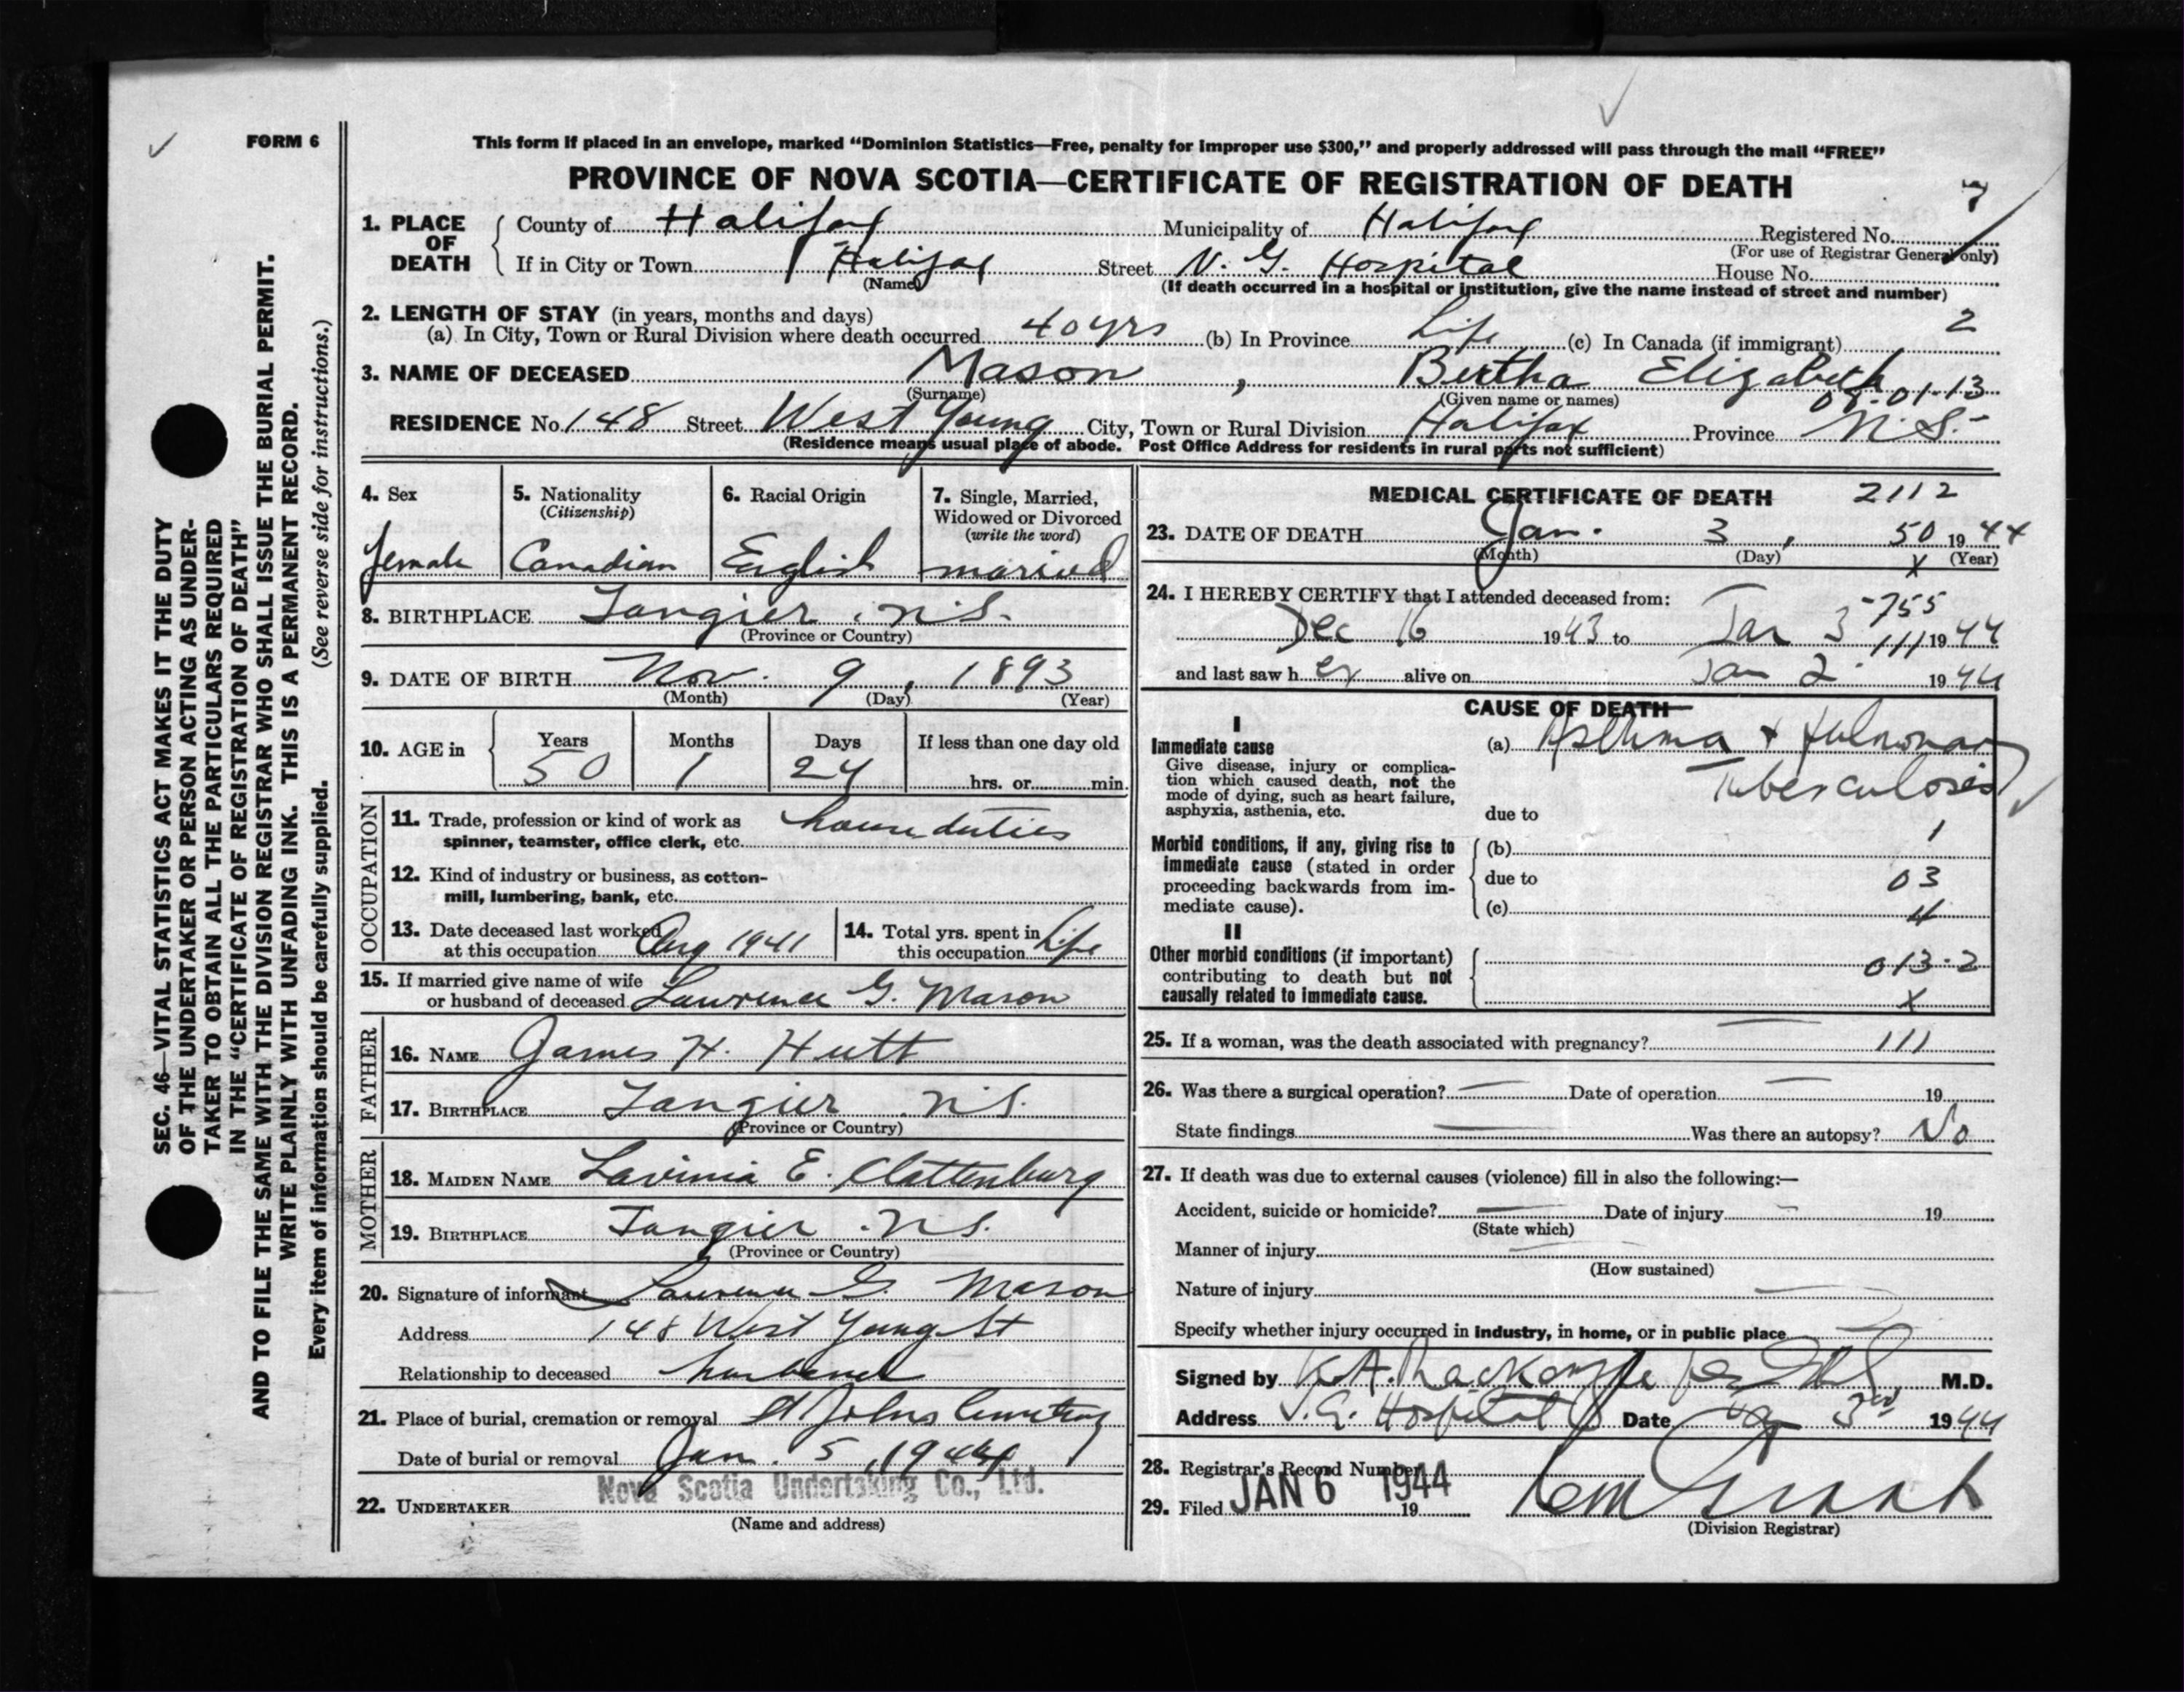 FORM 6
This form if placed in an envelope, marked "Dominion Statistics—Free, penalty for improper use $300," and properly addressed will pass through the mail "FREE"
PROVINCE OF NOVA SCOTIA—CERTIFICATE OF REGISTRATION OF DEATH
7
1. PLACE OF DEATH County of Halifax Municipality of Halifax Registered No.
(For use of Registrar General only)
If in City or Town Halifax Street V. G. Hospital House No.
(Name) (If death occurred in a hospital or institution, give the name instead of street and number)
2. LENGTH OF STAY (in years, months and days)
(a) In City, Town or Rural Division where death occurred 40 yrs (b) In Province Life (c) In Canada (if immigrant) 2
3. NAME OF DECEASED Mason, Bertha Elizabeth
(Surname) (Given name or names) 08-01-13
RESIDENCE No. 148 Street West Young City, Town or Rural Division Halifax Province N.S.
(Residence means usual place of abode. Post Office Address for residents in rural parts not sufficient)
4. Sex
female
5. Nationality
(Citizenship)
Canadian
6. Racial Origin
English
7. Single, Married,
Widowed or Divorced
(write the word)
married
8. BIRTHPLACE Tangier N.S.
(Province or Country)
9. DATE OF BIRTH Nov. 9, 1893
(Month) (Day) (Year)
10. AGE in Years Months Days If less than one day old
50 1 24 hrs. or min.
OCCUPATION
11. Trade, profession or kind of work as
spinner, teamster, office clerk, etc. house duties
12. Kind of industry or business, as cotton-
mill, lumbering, bank, etc.
13. Date deceased last worked
at this occupation Aug 1941
14. Total yrs. spent in
this occupation Life
15. If married give name of wife
or husband of deceased Lawrence G. Mason
FATHER
16. NAME James H. Hutt
17. BIRTHPLACE Tangier N.S.
(Province or Country)
MOTHER
18. MAIDEN NAME Lavinia E. Clattenburg
19. BIRTHPLACE Tangier N.S.
(Province or Country)
20. Signature of informant Lawrence G. Mason
Address 148 West Young St
Relationship to deceased husband
21. Place of burial, cremation or removal St Johns Cemetery
Date of burial or removal Jan. 5, 1944
Nova Scotia Undertaking Co., Ltd.
22. UNDERTAKER
(Name and address)
MEDICAL CERTIFICATE OF DEATH 2112
23. DATE OF DEATH Jan. 3, 50 1944
(Month) (Day) X (Year)
24. I HEREBY CERTIFY that I attended deceased from: -755
Dec 16 1943 to Jan 3 111 1944
and last saw her alive on Jan 2 1944
CAUSE OF DEATH
I
Immediate cause
Give disease, injury or complica-
tion which caused death, not the
mode of dying, such as heart failure,
asphyxia, asthenia, etc.
(a) Asthma + Pulmonary
Tuberculosis
due to
1
Morbid conditions, if any, giving rise to
immediate cause (stated in order
proceeding backwards from im-
mediate cause).
(b)
due to 03
(c) 4
II
Other morbid conditions (if important)
contributing to death but not
causally related to immediate cause.
013-2
X
25. If a woman, was the death associated with pregnancy? — 111
26. Was there a surgical operation? — Date of operation — 19
State findings — Was there an autopsy? No
27. If death was due to external causes (violence) fill in also the following:—
Accident, suicide or homicide? — Date of injury — 19
(State which)
Manner of injury —
(How sustained)
Nature of injury —
Specify whether injury occurred in industry, in home, or in public place —
Signed by K.A. MacKenzie per M.D.
Address V.G. Hospital Date 3rd 1944
28. Registrar's Record Number
29. Filed JAN 6 1944 19
(Division Registrar)
SEC. 46—VITAL STATISTICS ACT MAKES IT THE DUTY
OF THE UNDERTAKER OR PERSON ACTING AS UNDER-
TAKER TO OBTAIN ALL THE PARTICULARS REQUIRED
IN THE "CERTIFICATE OF REGISTRATION OF DEATH"
AND TO FILE THE SAME WITH THE DIVISION REGISTRAR WHO SHALL ISSUE THE BURIAL PERMIT.
WRITE PLAINLY WITH UNFADING INK. THIS IS A PERMANENT RECORD.
Every item of information should be carefully supplied. (See reverse side for instructions.)